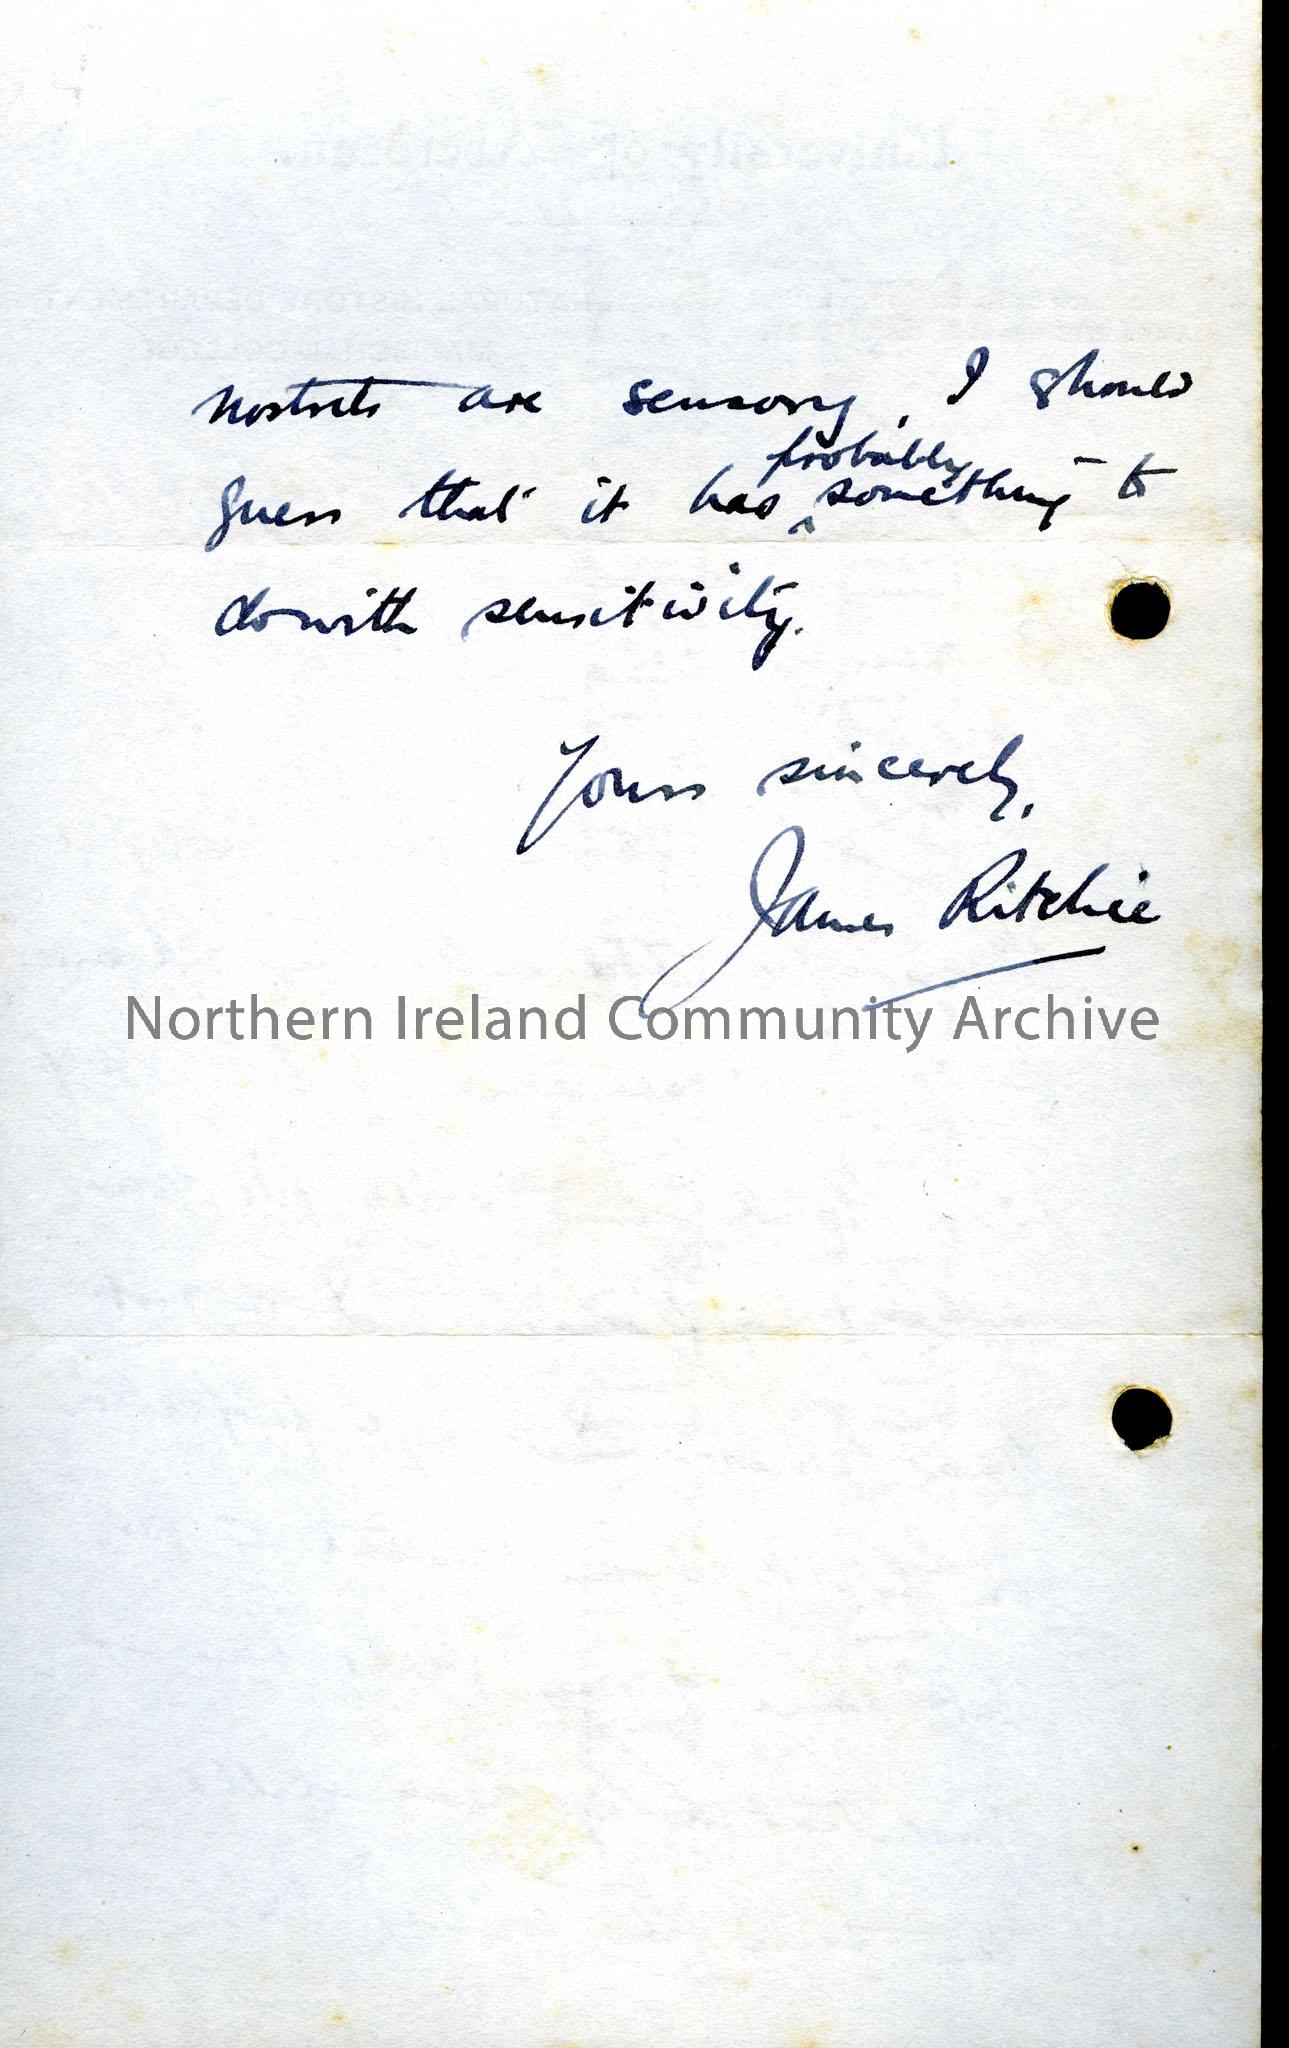 nostrils are sensory, I should
guess that it has probably something to
do with sensitivity.
Yours sincerely,
James Ritchie
Northern Ireland Community Archive